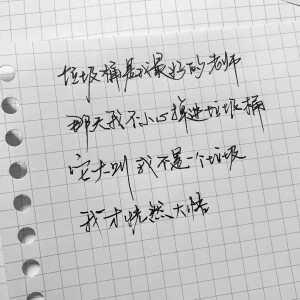 垃圾桶是我最好的老师
那天我不小心掉进垃圾桶
它大叫 我不是一个垃圾
我才恍然大悟